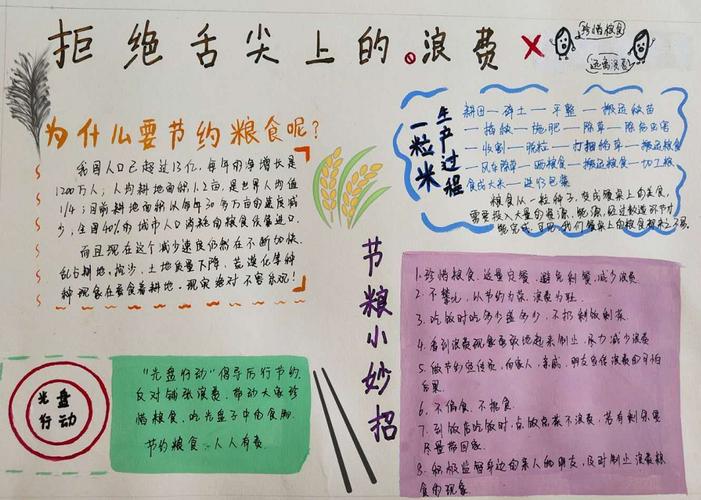 拒绝舌尖上的浪费
珍惜粮食
远离浪费
为什么要节约粮食呢?
我国人口已超过13亿，每年的净增长是
1200万人；人均耕地面积1.2亩，是世界人均值
1/4；目前耕地面积以每年30多万亩的速度减
少，全国60%的城市人口消耗的粮食依靠进口。
而且现在这个减少速度仍然在不断加快。
乱占耕地、土地质量下降、荒漠化等种
种现象在蚕食着耕地。现实绝对不容乐观!
一粒米
生产过程
耕田一碎土一平整一搬运秧苗
一插秧一施肥一除草一除病虫害
一收割一脱粒一打捆稻草一搬运粮食
一风车除草一晒粮食一搬运粮食一加工粮
食成大米一进行包装
粮食从一粒种子，变成餐桌上的美食，
需要投入大量的资源、能源，经过数道环节才
能完成，可见我们餐桌上的粮食都来之不易。
节粮小妙招
1.珍惜粮食，适量定餐，避免剩餐，减少浪费
2.不攀比，以节约为荣，浪费为耻。
3.吃饭时吃多少盛多少，不扔剩饭剩菜。
4.看到浪费现象勇敢地起来制止，尽力减少浪费
5.做节约宣传员，向家人、亲戚、朋友宣传浪费的可怕
后果。
6.不偏食，不挑食。
7.到饭店吃饭时，点饭点菜不浪费，若有剩余要
尽量带回家。
8.积极监督身边的亲人和朋友，及时制止浪费粮
食的现象。
光盘
行动
“光盘行动”倡导厉行节约，
反对铺张浪费，带动大家珍
惜粮食、吃光盘子中的食物。
节约粮食，人人有责